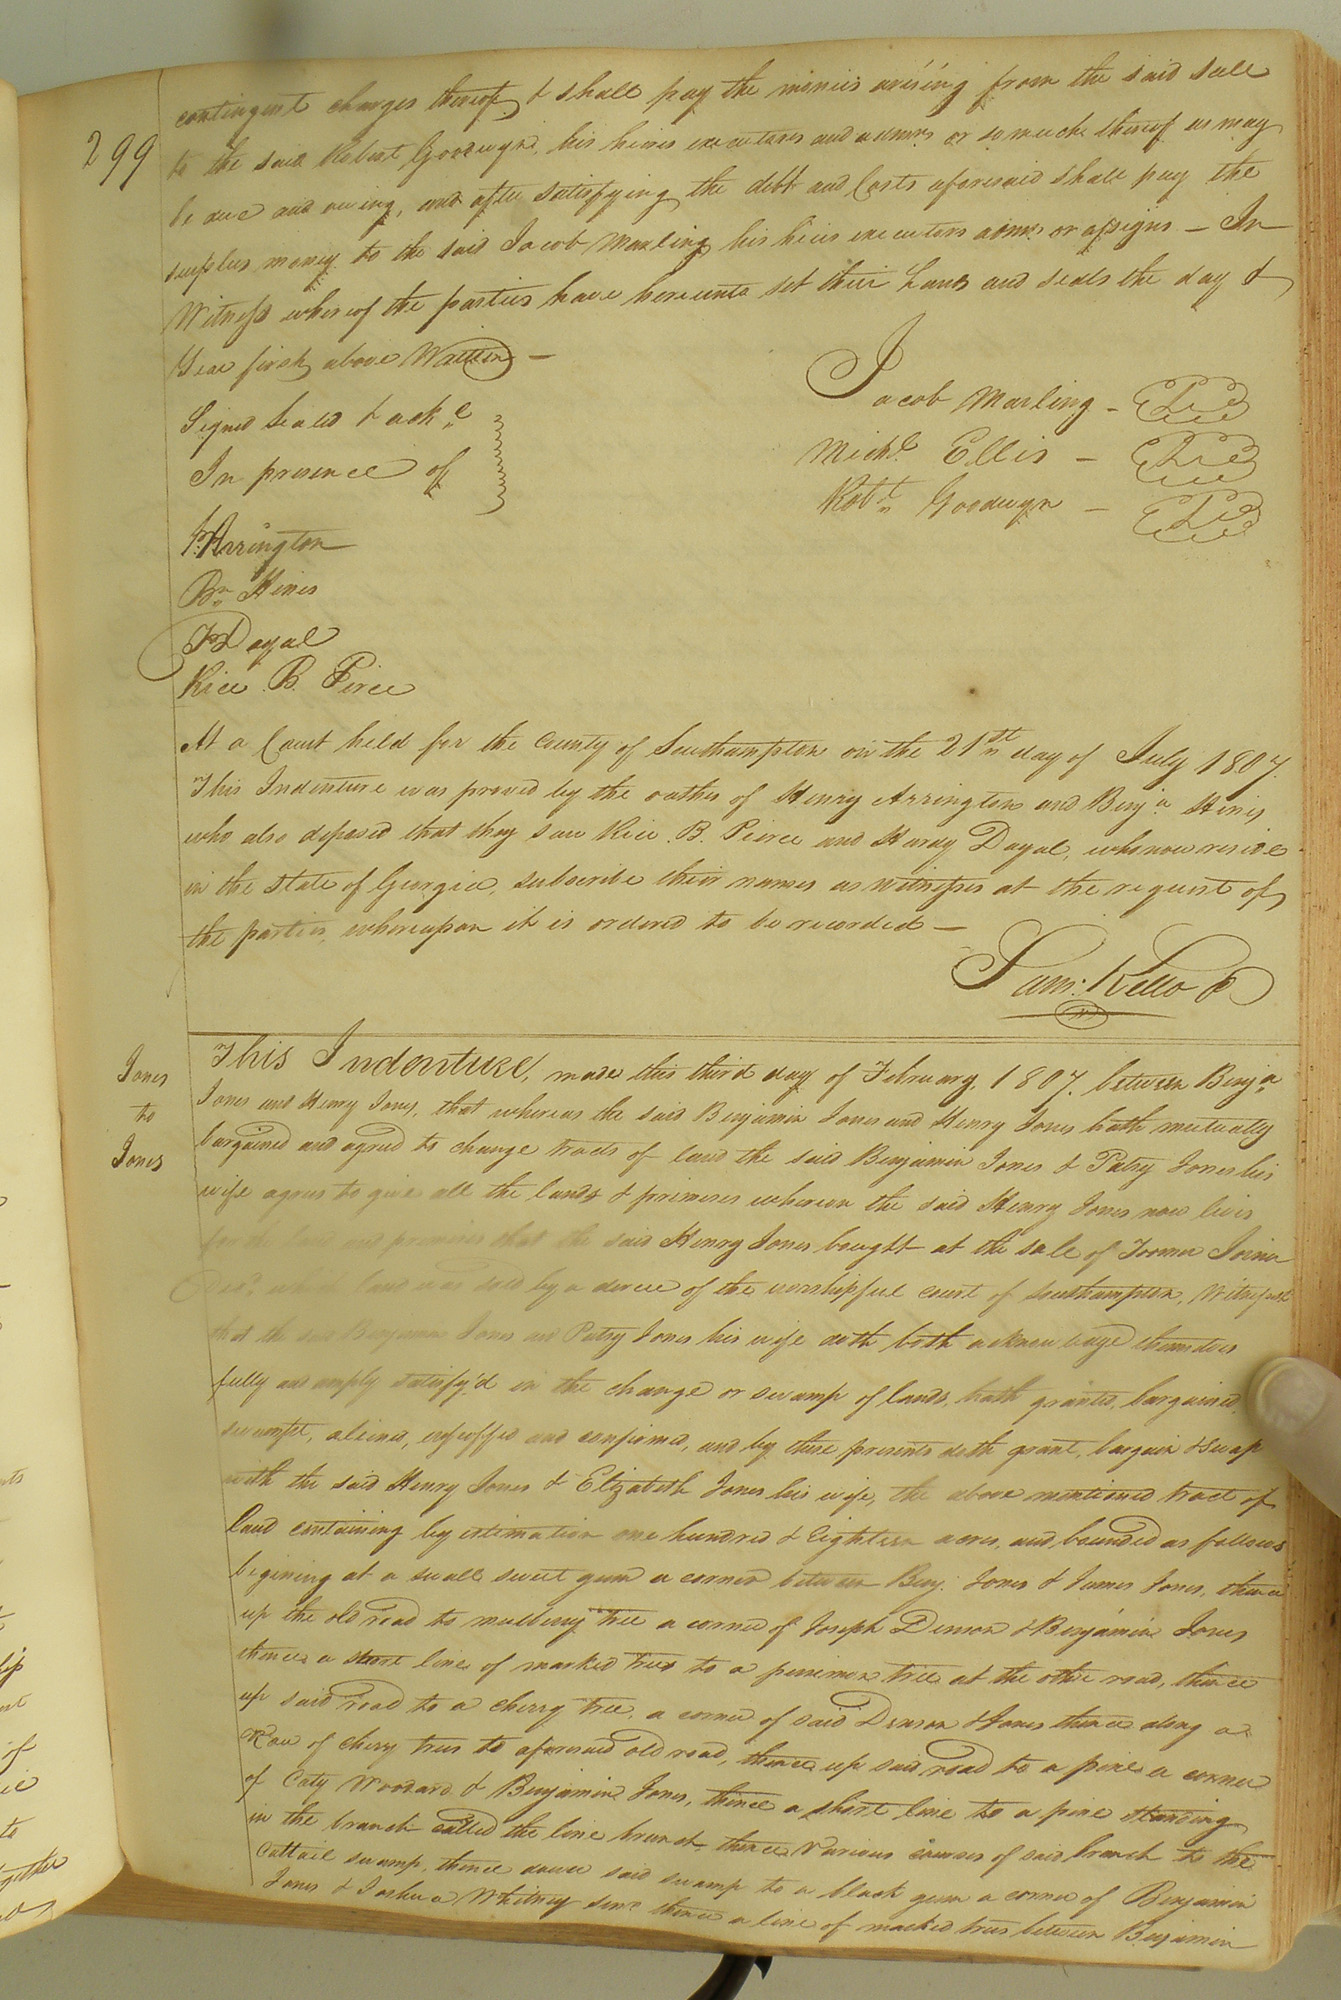 299
contingent charges thereof & shall pay the monies arising from the said sale
to the said Robert Goodwyn, his heirs executors and admrs or so much thereof as may
be due and owing, and after satisfying the debt and Costs aforesaid shall pay the
surplus money to the said Jacob Marling his heirs executors admrs or assigns — In
Witness whereof the parties have hereunto set their hands and seals the day &
Year first above Written —
Signed Sealed & ackd
In presence of
Jacob Marling - LS
Michl Ellis - LS
Robt Goodwyn - LS
H Arrington
Bn Hines
H Doyal
Rice B. Pirce
At a Court held for the County of Southampton on the 21st day of July 1807.
This Indenture was proved by the oaths of Henry Arrington and Benja Hines
who also deposed that they saw Rice B. Peirce and Hardy Doyal, who now reside
in the State of Georgia, subscribe their names as witnesses at the request of
the parties, whereupon it is ordered to be recorded —
Saml Kello C
Jones
to
Jones
This Indenture, made this third day of February 1807. between Benja
Jones and Henry Jones, that whereas the said Benjamin Jones and Henry Jones hath mutually
bargained and agreed to change tracts of land the said Benjamin Jones & Patsy Jones his
wife agrees to give all the lands & primeses whereon the said Henry Jones now lives
for the land and premises that the said Henry Jones bought at the sale of Joiner
which land was sold by a decree of the worshipful court of Southampton, Witnesseth
that the said Benjamin Jones and Patsy Jones his wife doth both acknowledge themselves
fully and amply satisfy'd in the change or swamp of lands, hath granted, bargained,
aliened, enfeoffed and confirmed, and by these presents doth grant, bargain & swap
with the said Henry Jones & Elizabeth Jones his wife, the above mentioned tract of
land containing by estimation one hundred & Eighteen acres, and bounded as follows
begining at a small sweet gum a corner between Benj. Jones & James Jones, thence
up the old road to mulberry tree a corner of Joseph Denson & Benjamin Jones
thence a short line of marked trees to a persimon tree at the other road, thence
up said road to a cherry tree, a corner of said Denson & Jones thence along a
Row of chery trees to aforesaid old road, thence up said road to a pine a corner
of Caty Woodard & Benjamin Jones, thence a short line to a pine standing
in the branch called the line branch thence Various courses of said branch to the
Cattail swamp, thence down said swamp to a black gum a corner of Benjamin
Jones & Joshua Whitney senr thence a line of marked trees between Benjamin